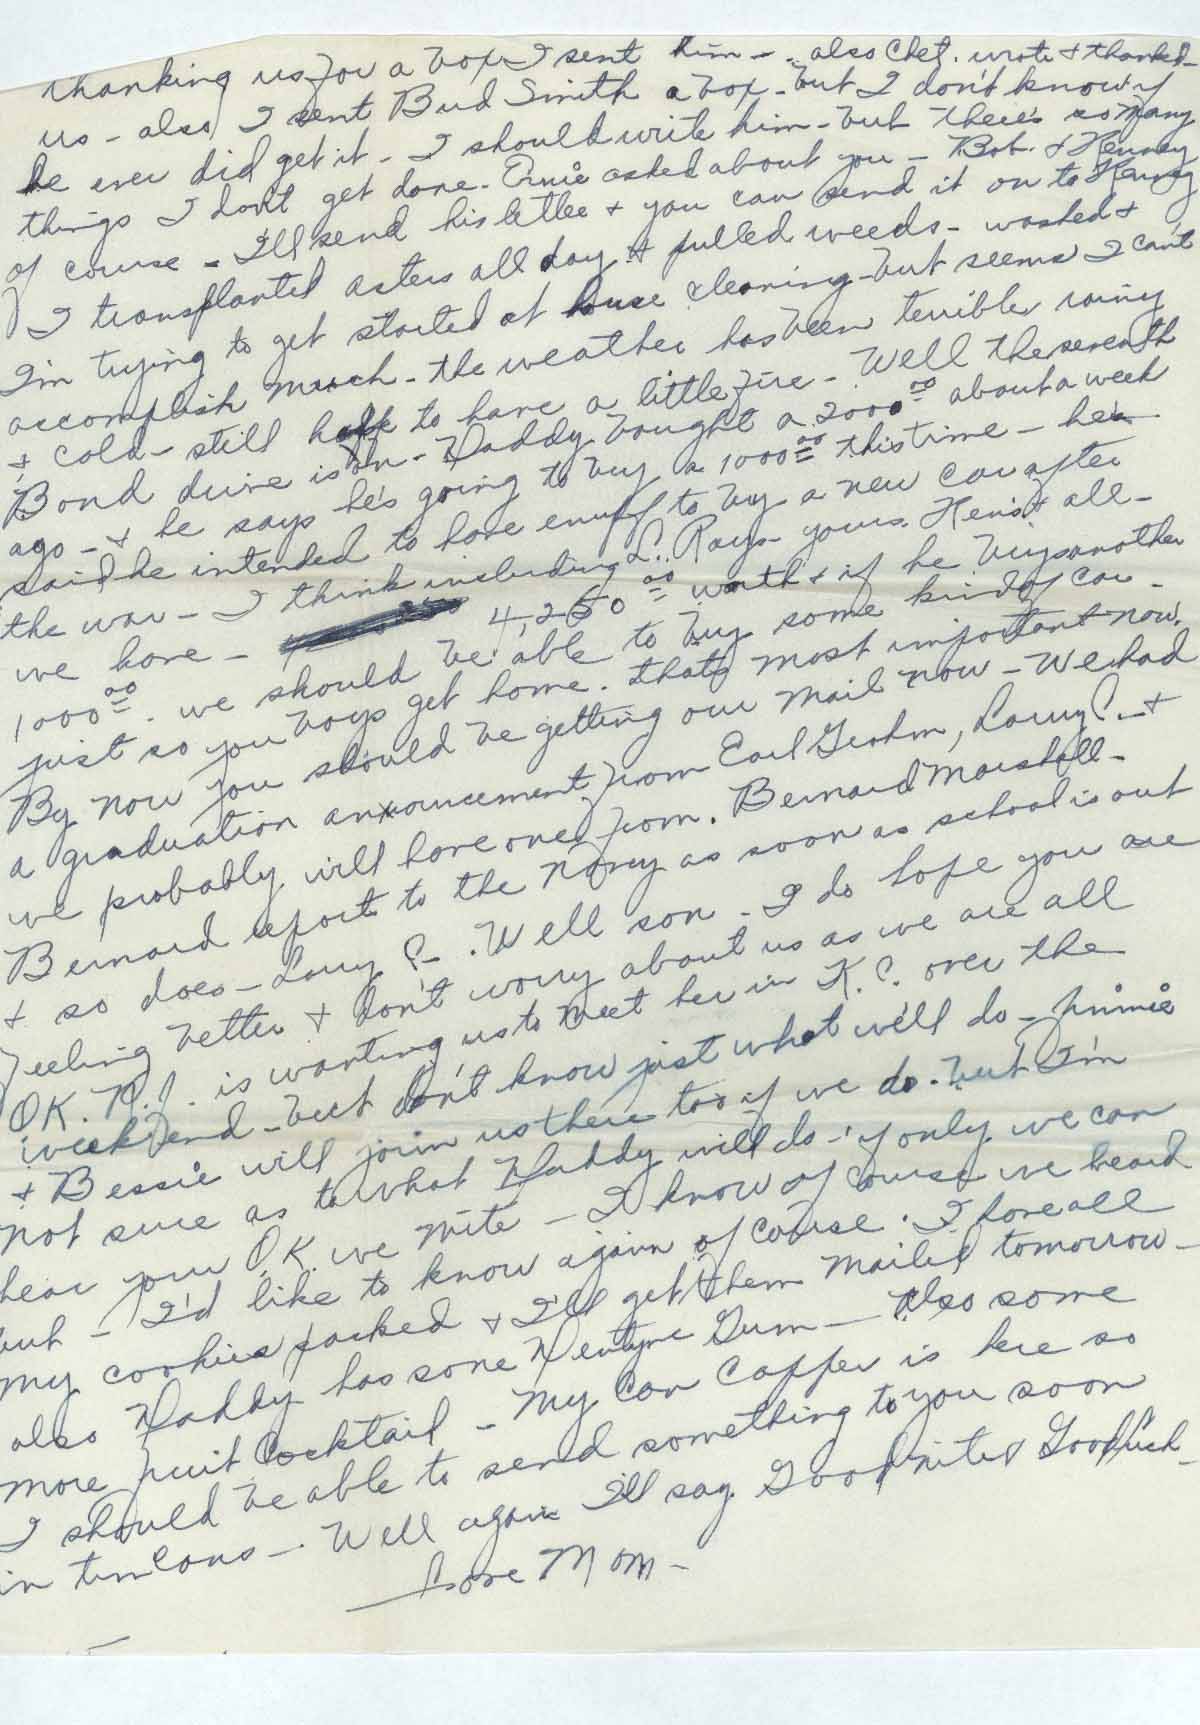 thanking us for a box I sent him - . also Chet. wrote & thanked
us - also I sent Bud Smith a box - but I don't know if
he ever did get it - I should write him - but there's so many
things I don't get done. Ernie asked about you - Bob. & Kenney
of course - I'll send his letter & you can send it on to Kenney
I transplanted asters all day & pulled weeds - washed &
I'm trying to get started at house cleaning - but seems I can't
accomplish much - the weather has been terrible, rainy
& cold - still have to have a little fire - Well the seventh
Bond drive is on - Daddy bought a 2000.00 about a week
ago - & he says he's going to buy a 1000.00 this time - he's
said he intended to have enuff to buy a new car after
the war - I think including L. Rays - yours. Ken's & all -
we have - 4,250.00 worth & if he buys another
1000.00. we should be able to buy some kind of car -
just so you boys get home. thats most important now.
By now you should be getting our mail now - We had
a graduation announcement from Earl Graham, Larry P. - &
we probably will have one from. Bernard Marshall -
Bernard report to the Navy as soon as school is out
& so does - Larry P - . Well son - I do hope you are
feeling better & don't worry about us as we are all
OK. R.J. is wanting us to meet her in K.C. over the
week end - but don't know just what we'll do - Jimmie
& Bessie will join us there too if we do. but I'm
not sure as to what Daddy will do - if only we can
hear your O.K. we mite - I know of course we heard
but - I'd like to know again of course. I have all
my cookies packed & I'll get them mailed tomorrow -
also Daddy has some Dentyne Gum - also some
more fruit Cocktail - My Can Capper is here so
I should be able to send something to you soon
in tin cans - . Well again I'll say Good nite & Good luck -
Love Mom -